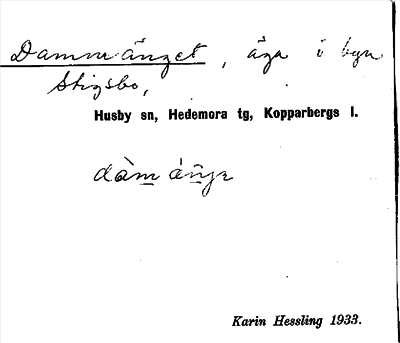 Dammänget, äga i byn
Stigsbo,
Husby sn, Hedemora tg, Kopparbergs l.
dàm ä́ŋgə
Karin Hessling 1933.